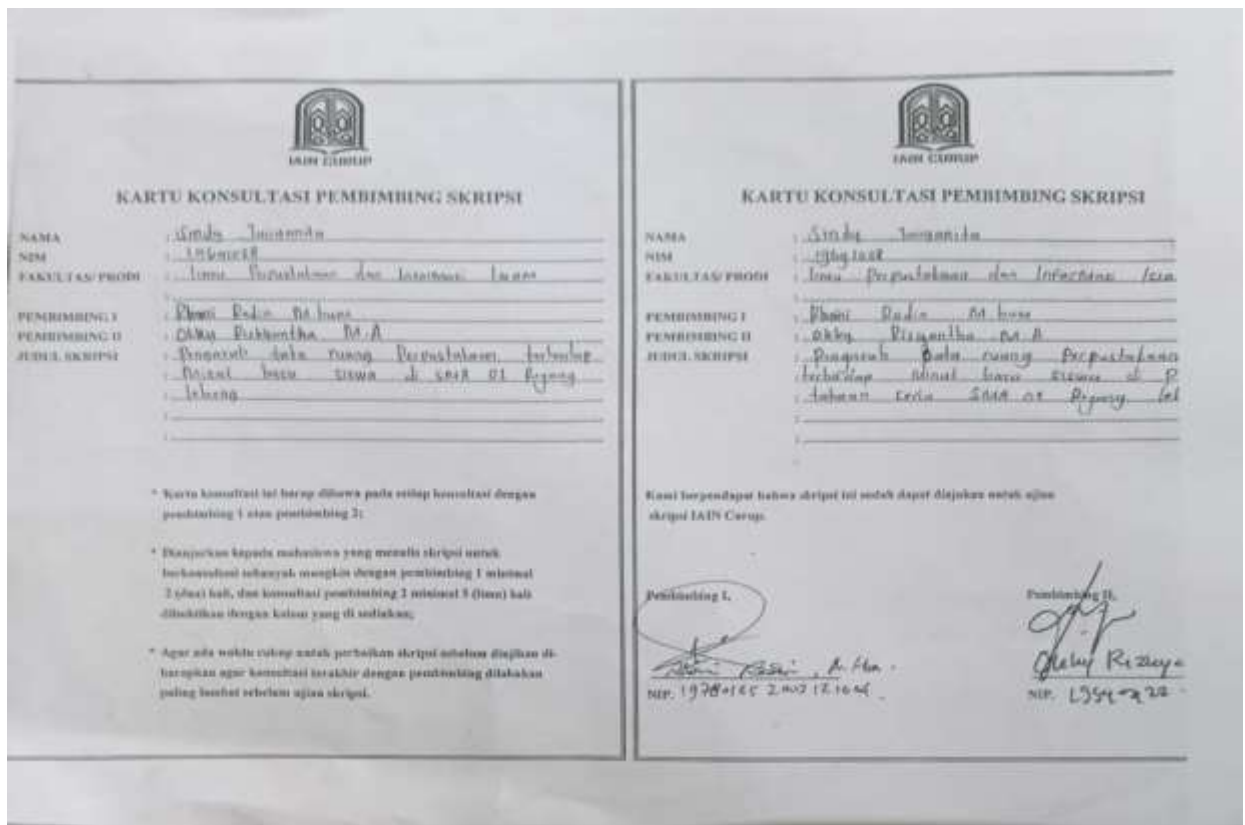 IAIN CURUP
KARTU KONSULTASI PEMBIMBING SKRIPSI
NAMA : Sindy
NIM :
FAKULTAS/ PRODI : Ilmu Perpustakaan dan Informasi Islam
PEMBIMBING I : Rhoni Rodin M.hum
PEMBIMBING II : Okky M.A
JUDUL SKRIPSI : Pengaruh tata ruang Perpustakaan terhadap
: Minat baca siswa di SMA 01 Rejang
: lebong
* Kartu konsultasi ini harap dibawa pada setiap konsultasi dengan
pembimbing 1 atau pembimbing 2;
* Dianjurkan kepada mahasiswa yang menulis skripsi untuk
berkonsultasi sebanyak mungkin dengan pembimbing 1 minimal
2 (dua) kali, dan konsultasi pembimbing 2 minimal 5 (lima) kali
dibuktikan dengan kolom yang di sediakan;
* Agar ada waktu cukup untuk perbaikan skripsi sebelum diujikan di-
harapkan agar konsultasi terakhir dengan pembimbing dilakukan
paling lambat sebelum ujian skripsi.
IAIN CURUP
KARTU KONSULTASI PEMBIMBING SKRIPSI
NAMA : Sindy
NIM :
FAKULTAS/ PRODI : Ilmu Perpustakaan dan
PEMBIMBING I : Rhoni Rodin M.hum
PEMBIMBING II : Okky M.A
JUDUL SKRIPSI : ruang Perpustakaan
: terhadap Minat baca siswa di P
: SMA 01 Rejang
Kami berpendapat bahwa skripsi ini sudah dapat diajukan untuk ujian
skripsi IAIN Curup.
Pembimbing I, Pembimbing II,
NIP. NIP.